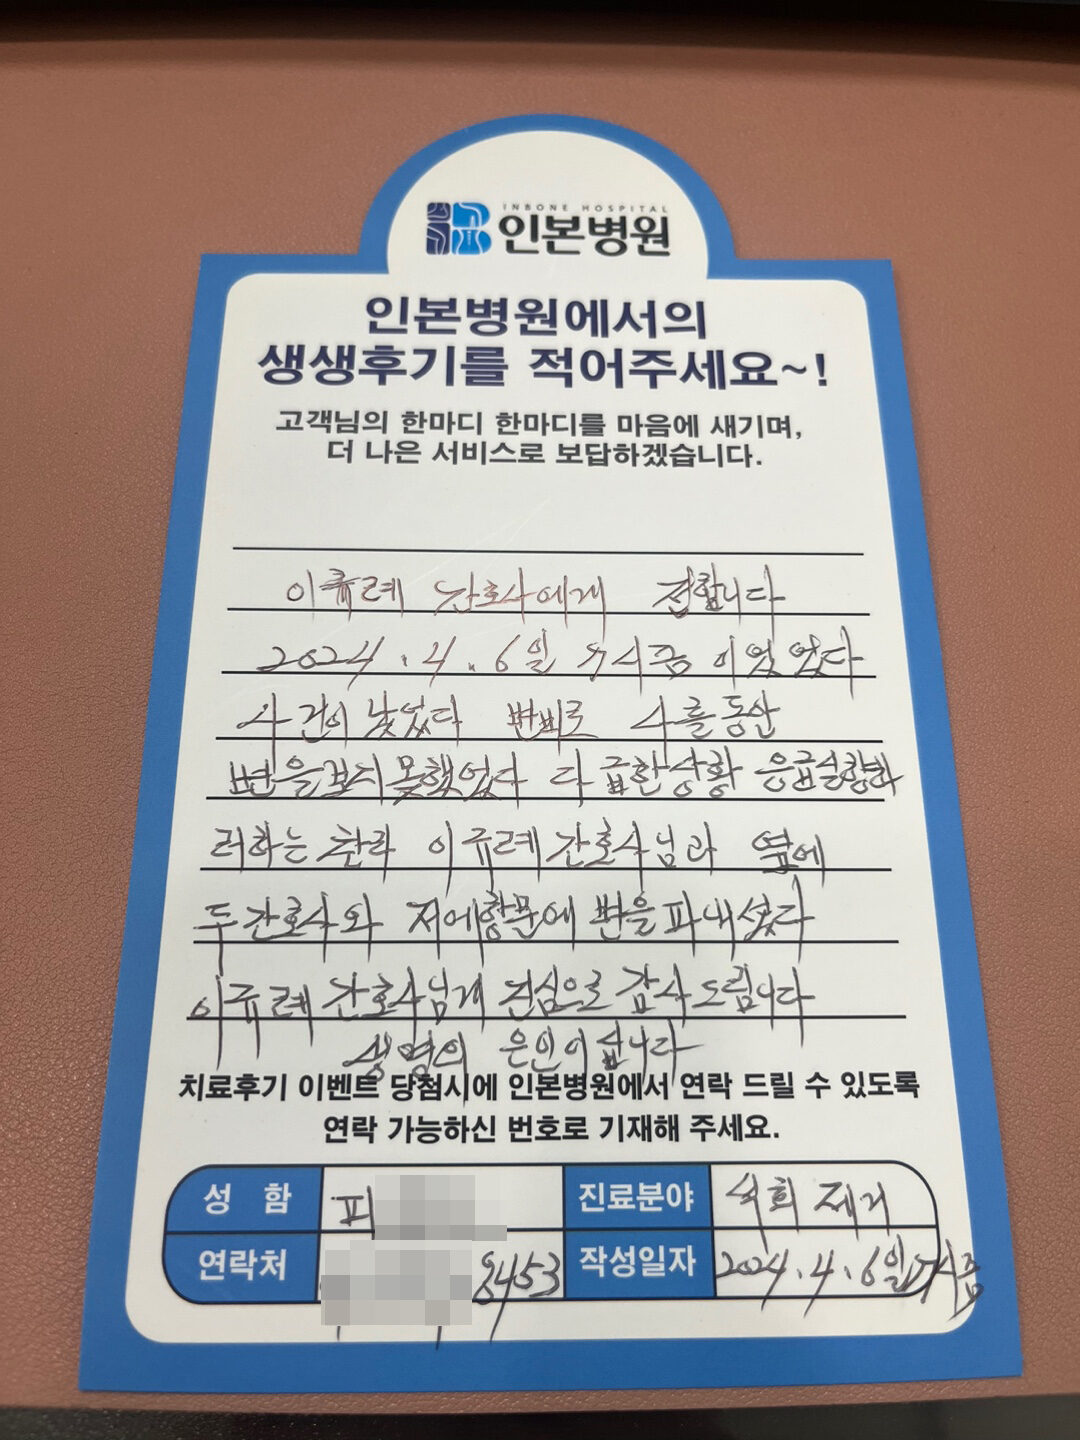 INBONE HOSPITAL
인본병원
인본병원에서의
생생후기를 적어주세요~!
고객님의 한마디 한마디를 마음에 새기며,
더 나은 서비스로 보답하겠습니다.
이류례 간호사에게 전합니다
2024.4.6일 7시쯤이었었다
사건이 낮었다 변비로 4흘동안
변을보지못했었다 다급한상황 응급실향
러하는 찬라 이규례간호사님과 옆에
두간호사와 저에항문에 변을파내셨다
이규례 간호사님게 진심으로 감사드립니다
생명의 은인이십니다
치료후기 이벤트 당첨시에 인본병원에서 연락 드릴 수 있도록
연락 가능하신 번호로 기재해 주세요.
성 함 피 진료분야 석회 제거
연락처 8453 작성일자 2024.4.6일 7시쯤